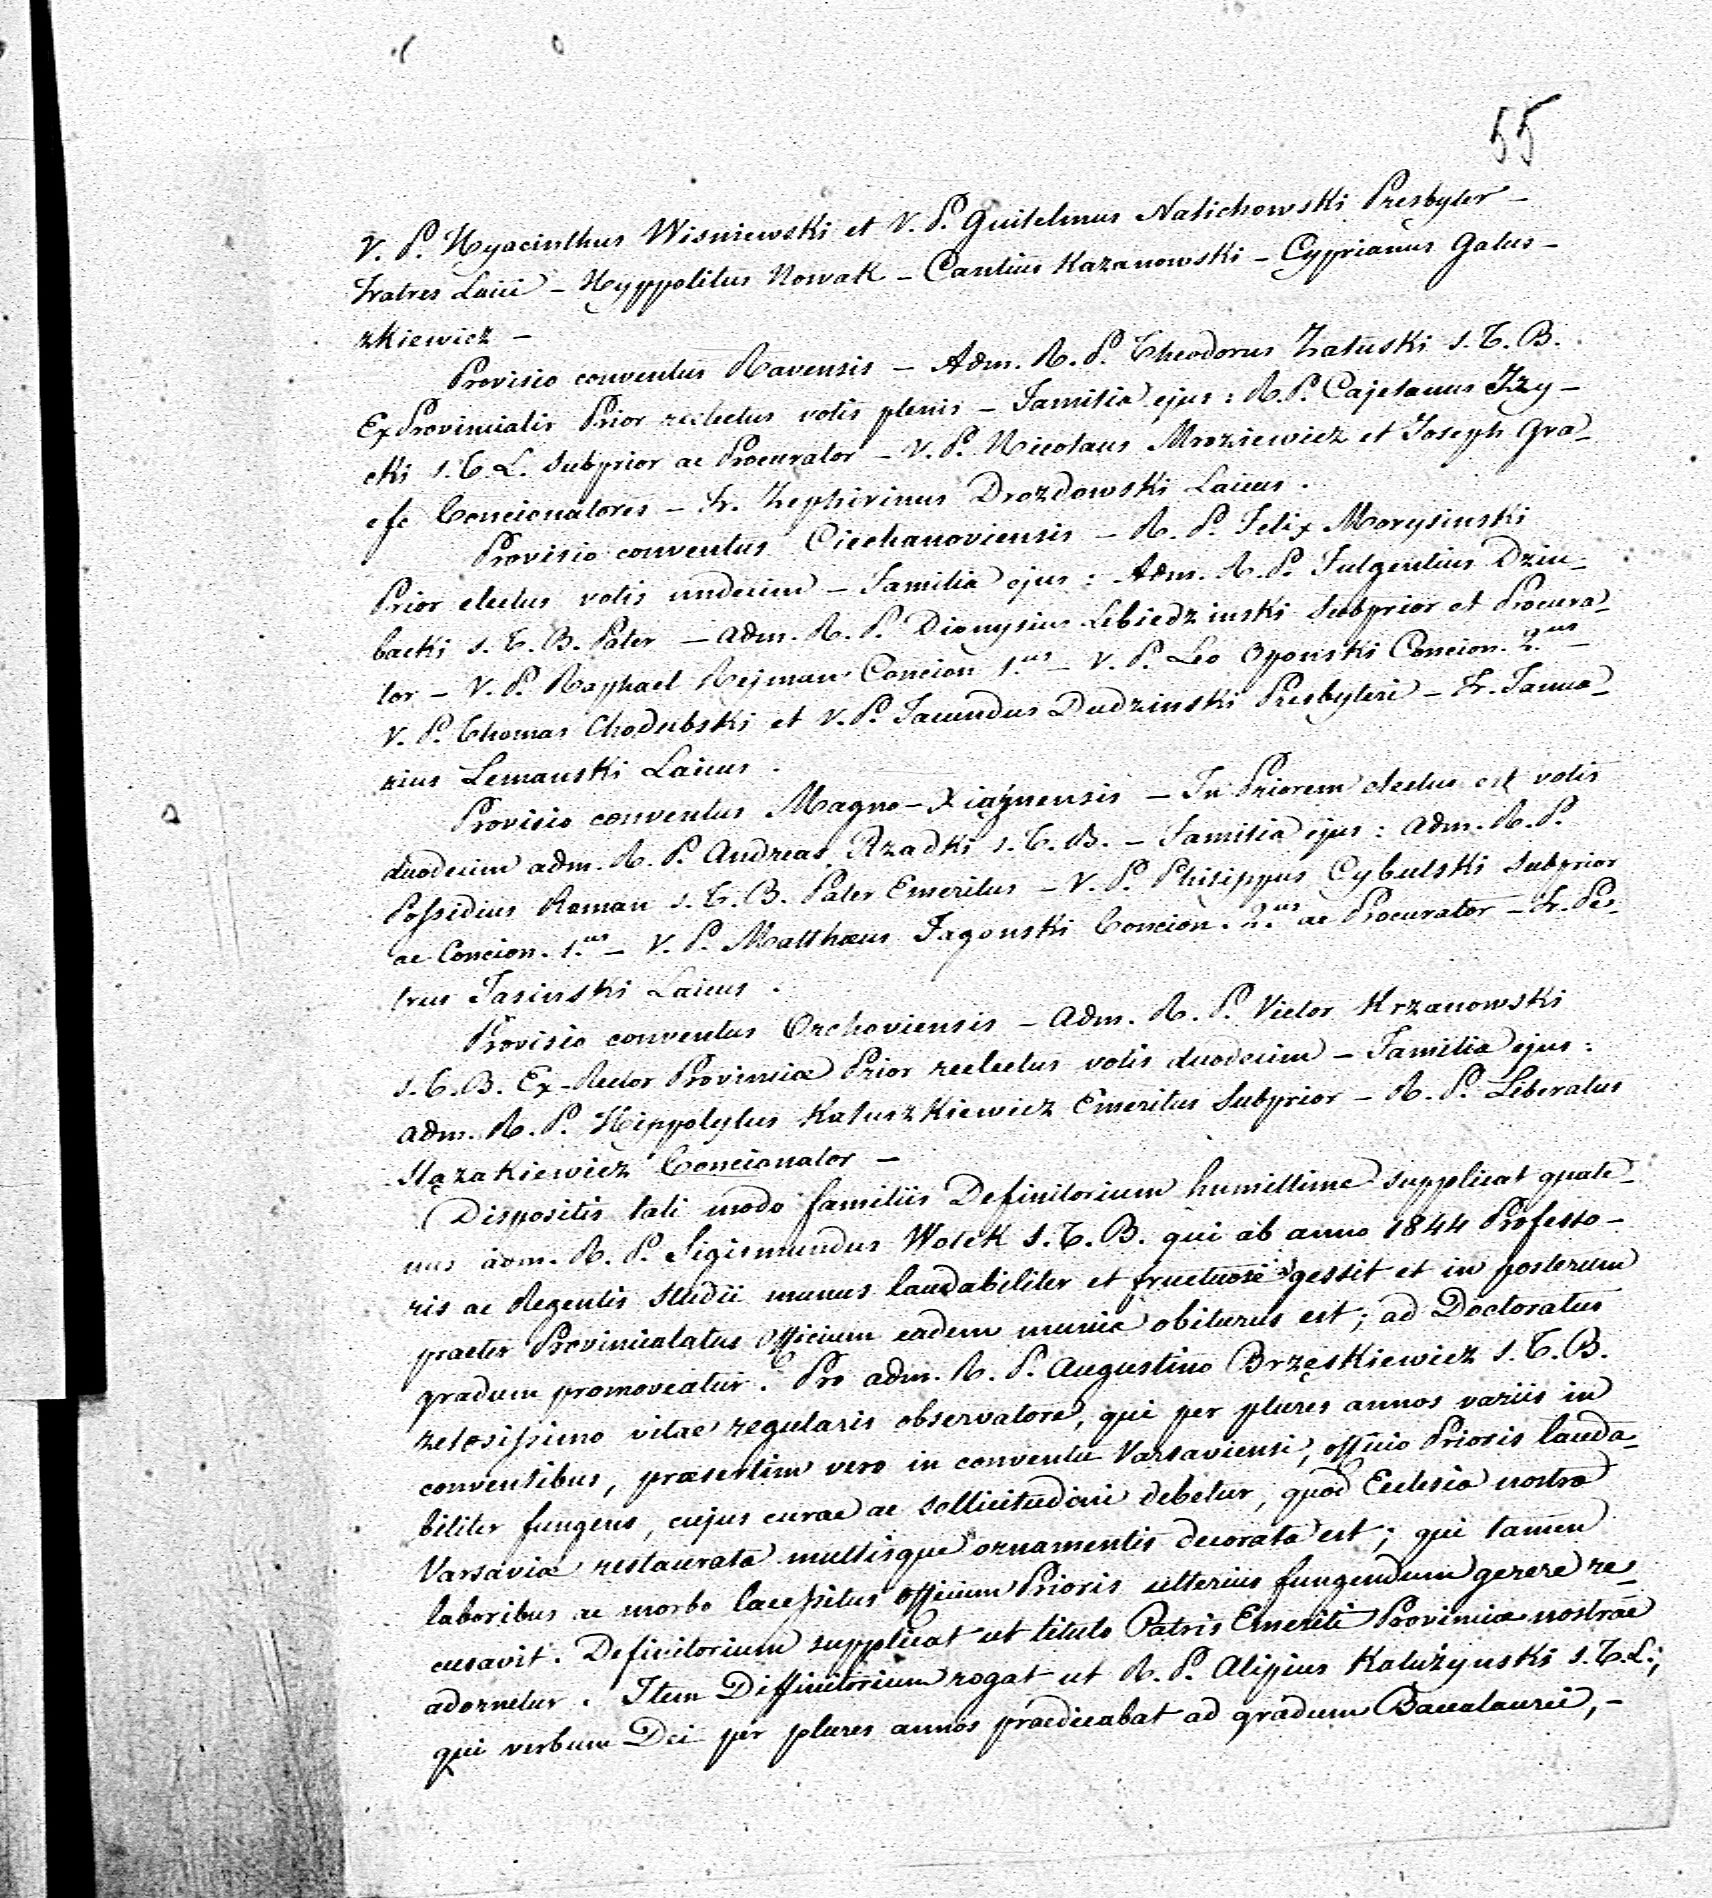 55
V. P. Hyacinthus Wisniewski et V. P. Guilelmus Nalichowski Presbyter –
Fratres Laici – Hyppolitus Nowak – Cantius Kazanowski – Cyprianus Galus –
zkiewicz –
Provisio conventus Ravensis – Adm. R. P. Theodorus Załuski S. T. B.
ExProvincialis Prior reelectus votis plenis – Familia ejus: R. P. Cajetanus Izy –
cki S. T. L. Subprior ac Procurator – V. P. Nicolaus Mroziewicz et Joseph Gra –
efe Concionatores – Fr. Zephirinus Drozdowski Laicus.
Provisio conventus Ciechanoviensis – R. P. Felix Morysinski
Prior electus votis undecim – Familia ejus: Adm. R. P. Fulgentius Dziu –
backi S. T. B. Pater – Adm. R. P. Dionysius Lebiedzinski Subprior et Procura –
tor – V. P. Raphael Rejman Concion 1.us – V. P. Leo Oponski Concion. 2.us –
V. P. Thomas Chodubski et V. P. Jacundus Dudzinski Presbyteri – Fr. Janua –
rius Lemanski Laicus.
Provisio conventus Magno-Xiąznensis – In Priorem electus est votis
duodecim adm. R. P. Andreas Rzadki S. T. B. – Familia ejus: Adm. R. P.
Possidius Roman S. T. B. Pater Emeritus – V. P. Philippus Cybulski Subprior
ac Concion. 1.us – V. P. Matthaeus Jagonski Concion. 2.us ac Procurator – Fr. Pe –
trus Jasinski Laicus.
Provisio conventus Orchoviensis – Adm. R. P. Victor Krzanowski
S. T. B. Ex-Rector Provinciae Prior reelectus votis duodecim – Familia ejus:
Adm. R. P. Hippolytus Kaluszkiewicz Emeritus Subprior – R. P. Liberatus
Concionator –
Dispositis tali modo familiis Definitorium humillime supplicat quate –
nus adm. R. P. Sigismundus Wolek S. T. B. qui ab anno 1844 Professo –
ris ac Regentis Studii munus laudabiliter et fructuose gessit et in posterum
praeter Provincialatus Officium eadem munia obiturus est; ad Doctoratus
gradum promoveatur. Pro adm. R. P. Augustino Brzęskiewicz S. T. B.
zelosissimo vitae regularis observatore, qui per plures annos variis in
conventibus, praesertim vero in conventu Varsaviensi, officio Prioris lauda –
biliter fungens, cujus curae ac sollicitudini debetur, quod Ecclesia nostra
Varsaviae restaurata multisque ornamentis decorata est; qui tamen
laboribus ac morbo lacessitus officium Prioris ulterius fungendum gerere re –
cusavit. Definitorium supplicat ut titulo Patris Emeriti Provinciae nostrae
adornetur. Item Diffinitorium rogat ut R. P. Alipius Kalużynski S. T. L.;
qui verbum Dei per plures annos praedicabat ad gradum Baccalaurei, –